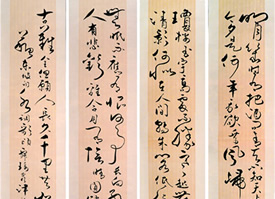 明月幾時有把酒問青天不知天
今夕是何年我欲乘風歸
瓊樓玉宇高處不勝寒起
清影何似在人間轉朱閣
無眠不應有恨何事長向
人有悲歡離合月有陰晴圓
古難全但願人長久千里共